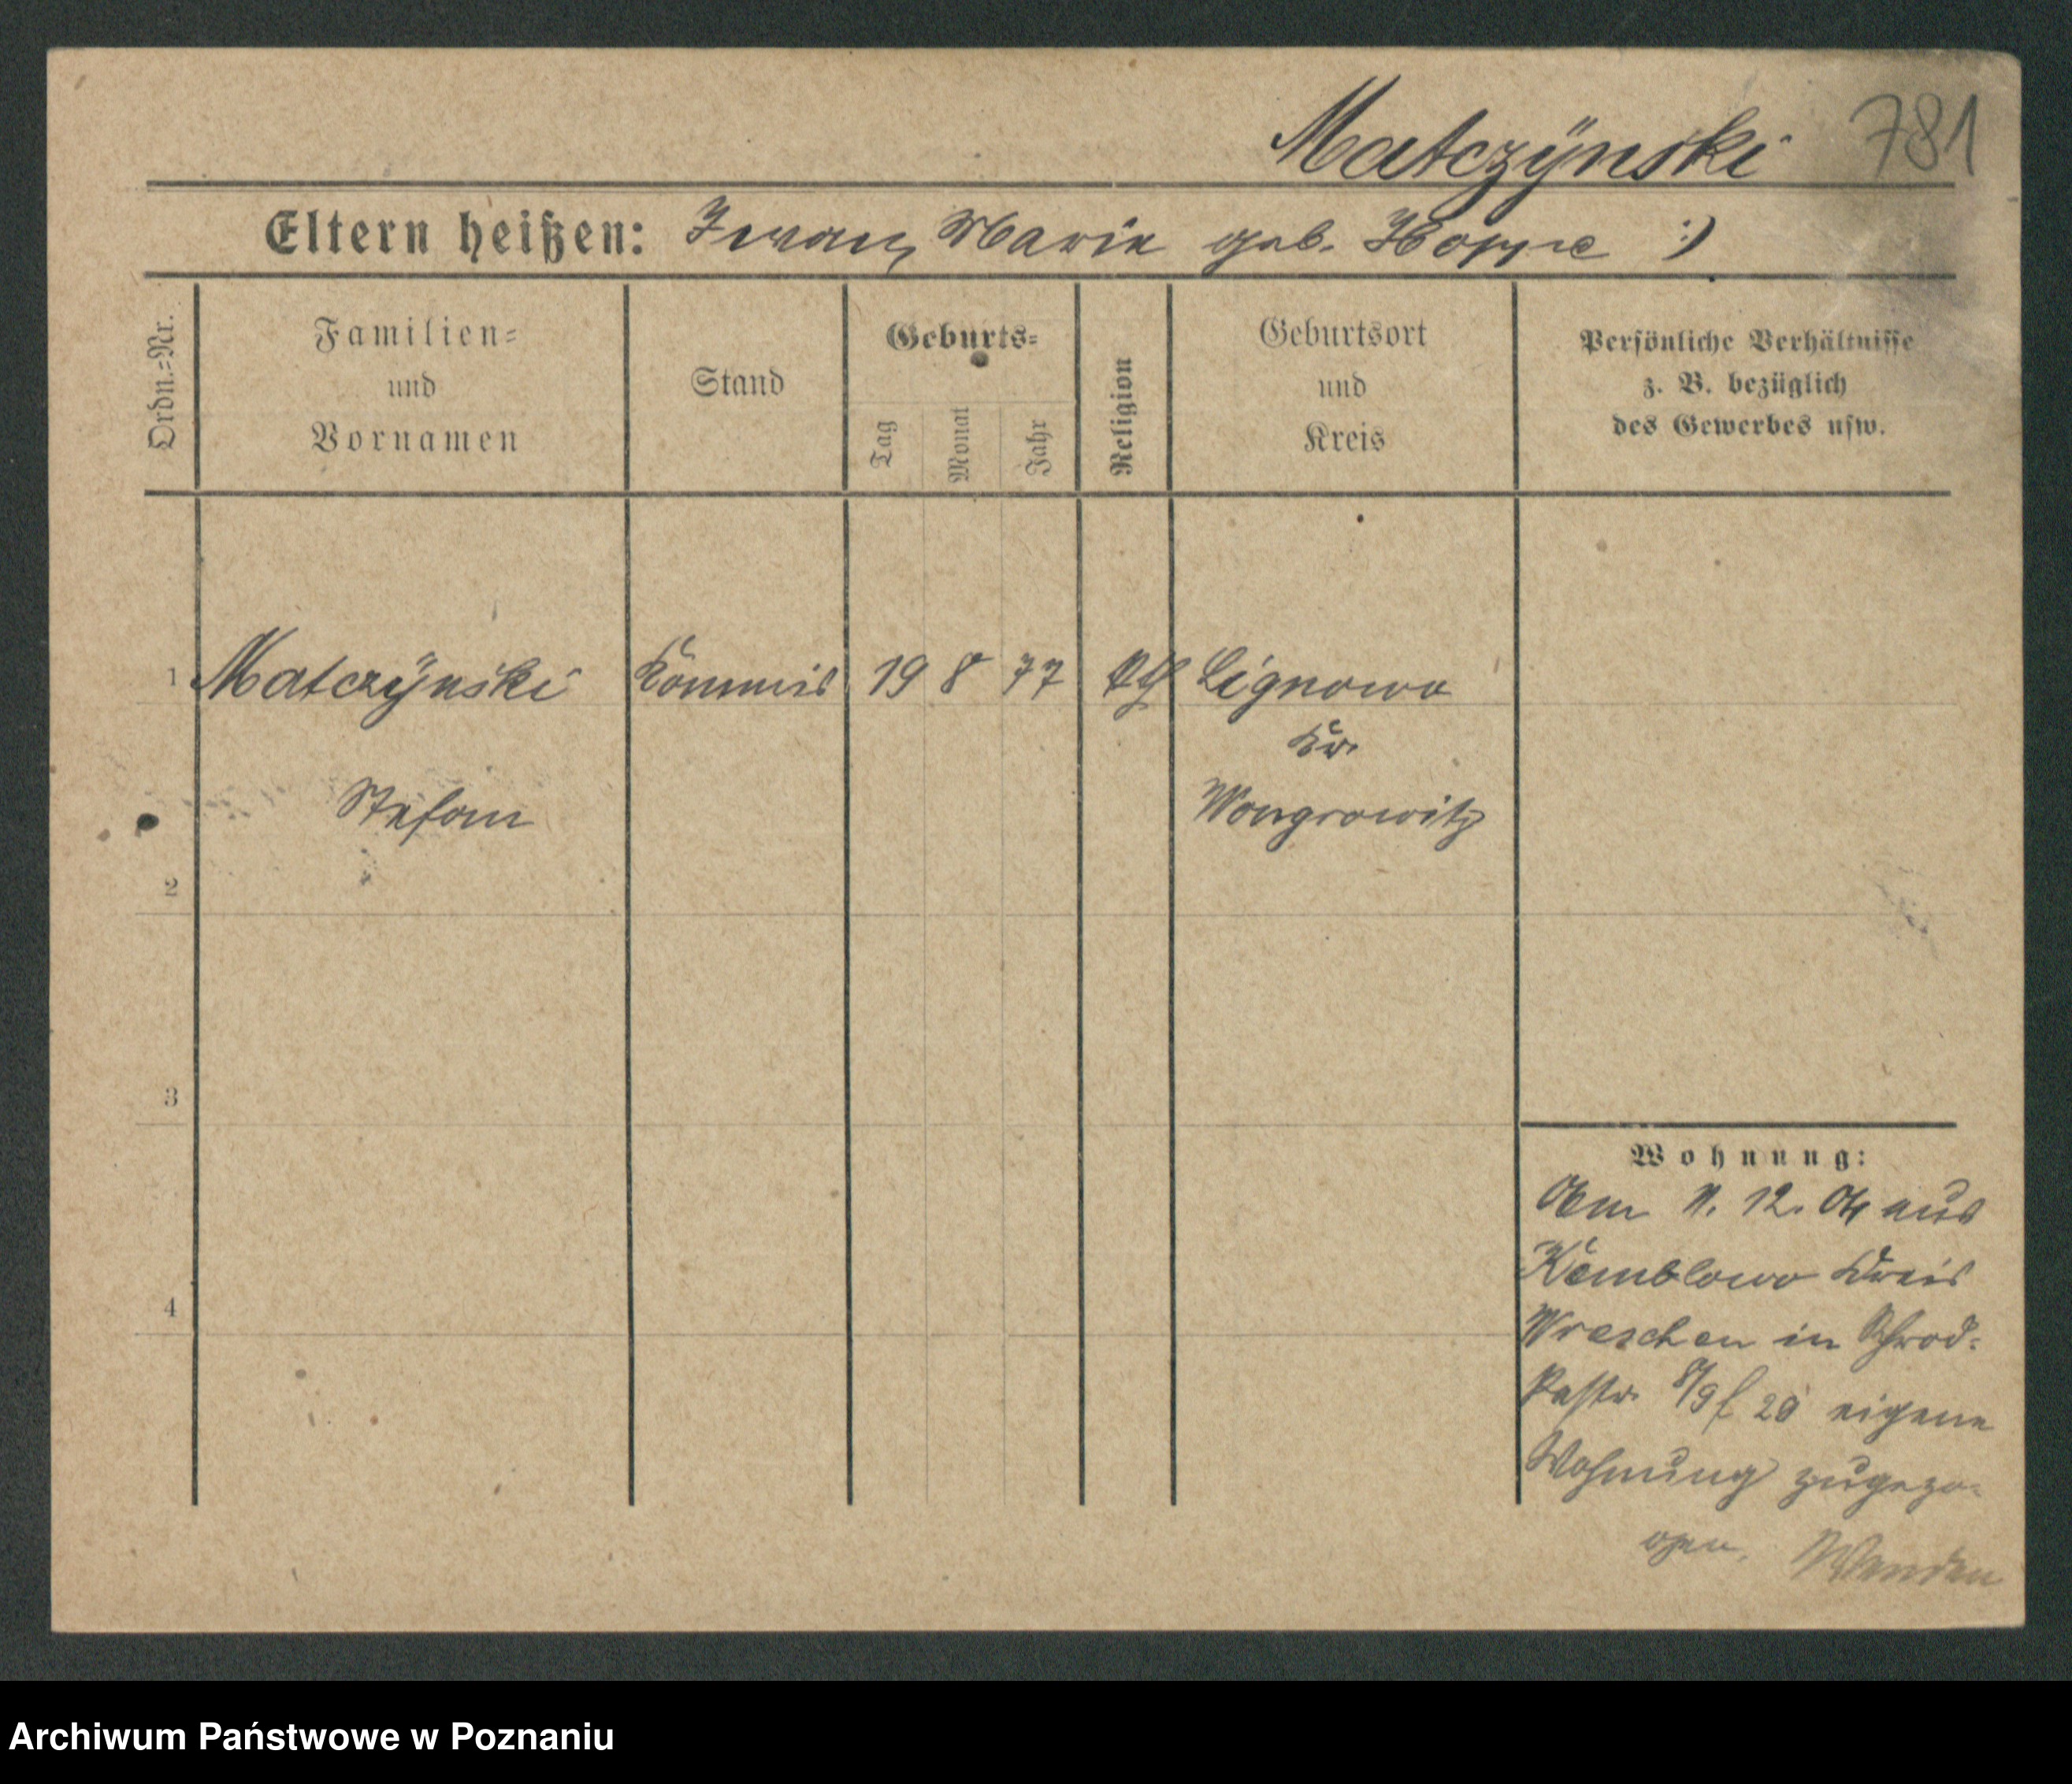 Matczÿnski 781
Eltern heißen: Marie geb. Hoppe :)
Ordn.=Nr.
Familien=
und
Vornamen
Stand
Geburts=
Tag
Monat
Jahr
Religion
Geburtsort
und
Kreis
Persönliche Verhältnisse
z. B. bezüglich
des Gewerbes usw.
1 Matczÿnski Kommis 19 8 77 Lignowo
Kr.
Stefan Wongrowitz
2
3
4
Wohnung:
Am 11. 12. 04 aus
Kemblowo Kreis
Wreschen in
8/9 20 eigene
Wohnung zugezo-
gen.
Archiwum Państwowe w Poznaniu